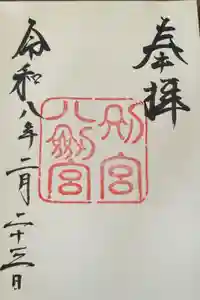 奉拝
別宮
八剱宮
令和八年二月二十三日